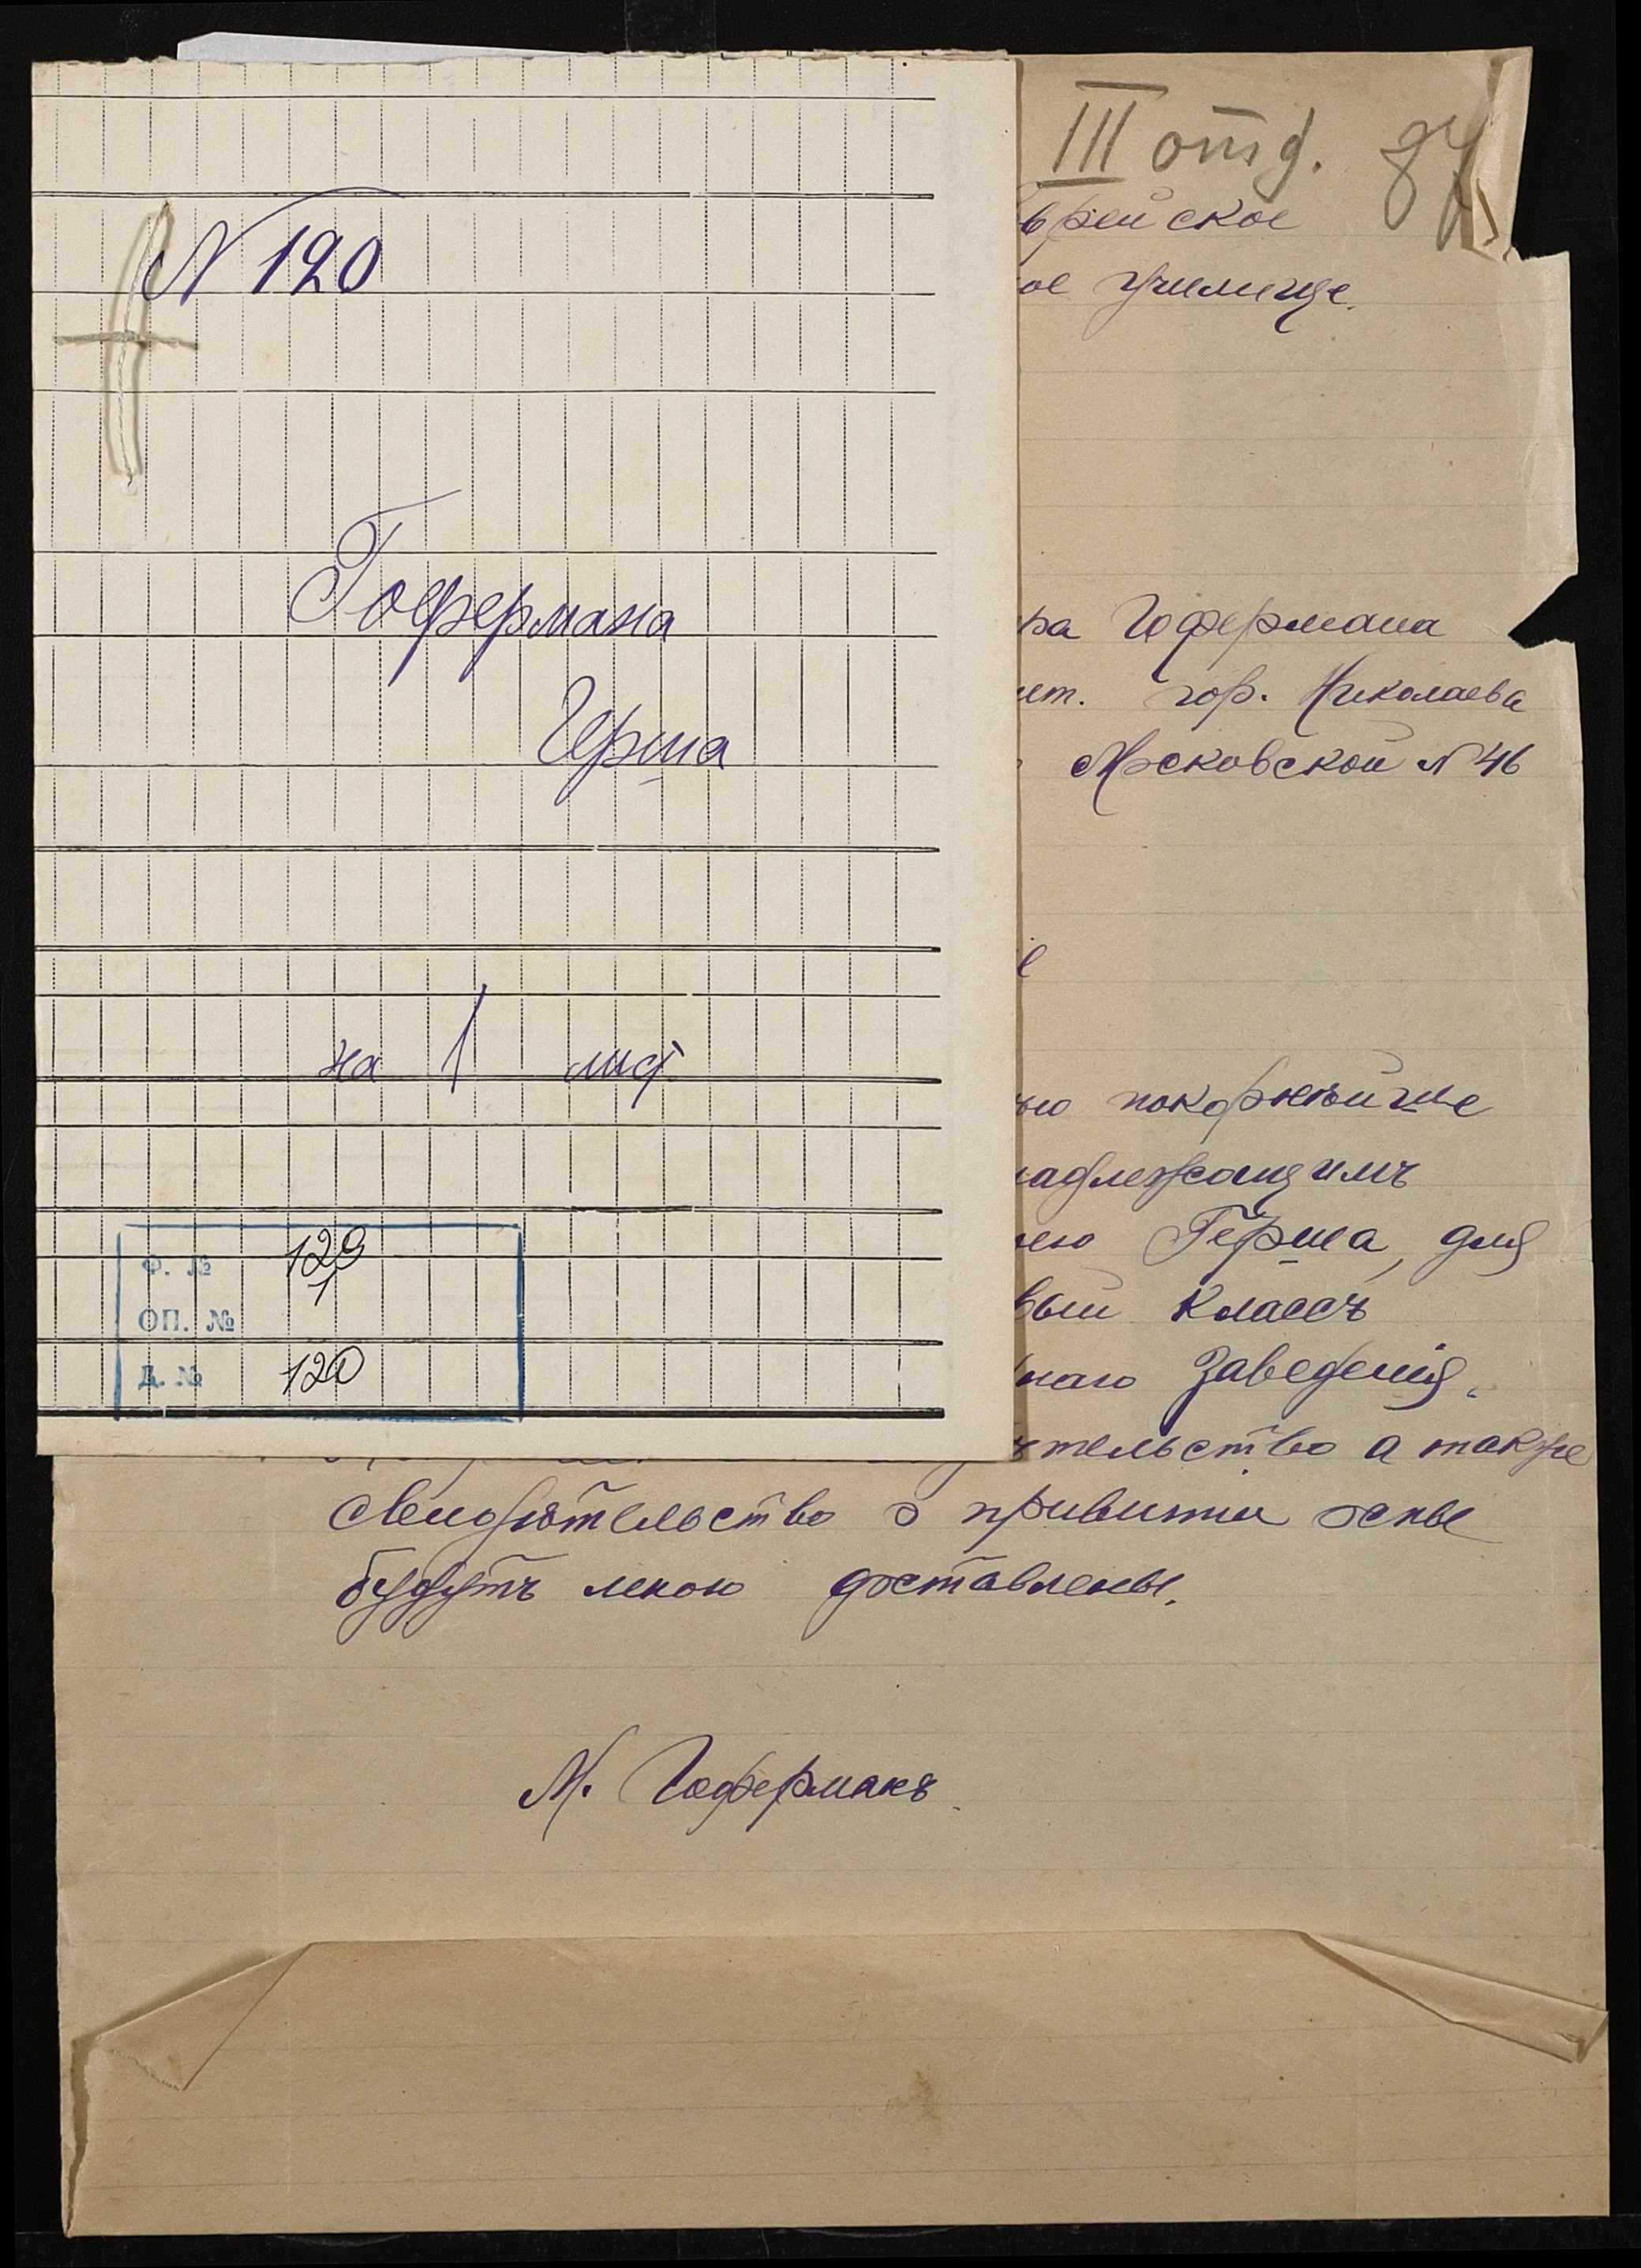 N 120
Гофермана
Герша
на 1 лист.
Ф. № 129
ОП. № 1
Д. № 120
III отд.
врейское
ое училище.
ра Гофермана
ит. гор. Николаева
Московской N 46
е
покорнѣйше
надлежащимъ
Герша, для
вый классъ
наго Заведенія.
ѣтельство а также
Свидѣтельство о привитіи оспы
будутъ мною доставлены.
М. Гоферманъ